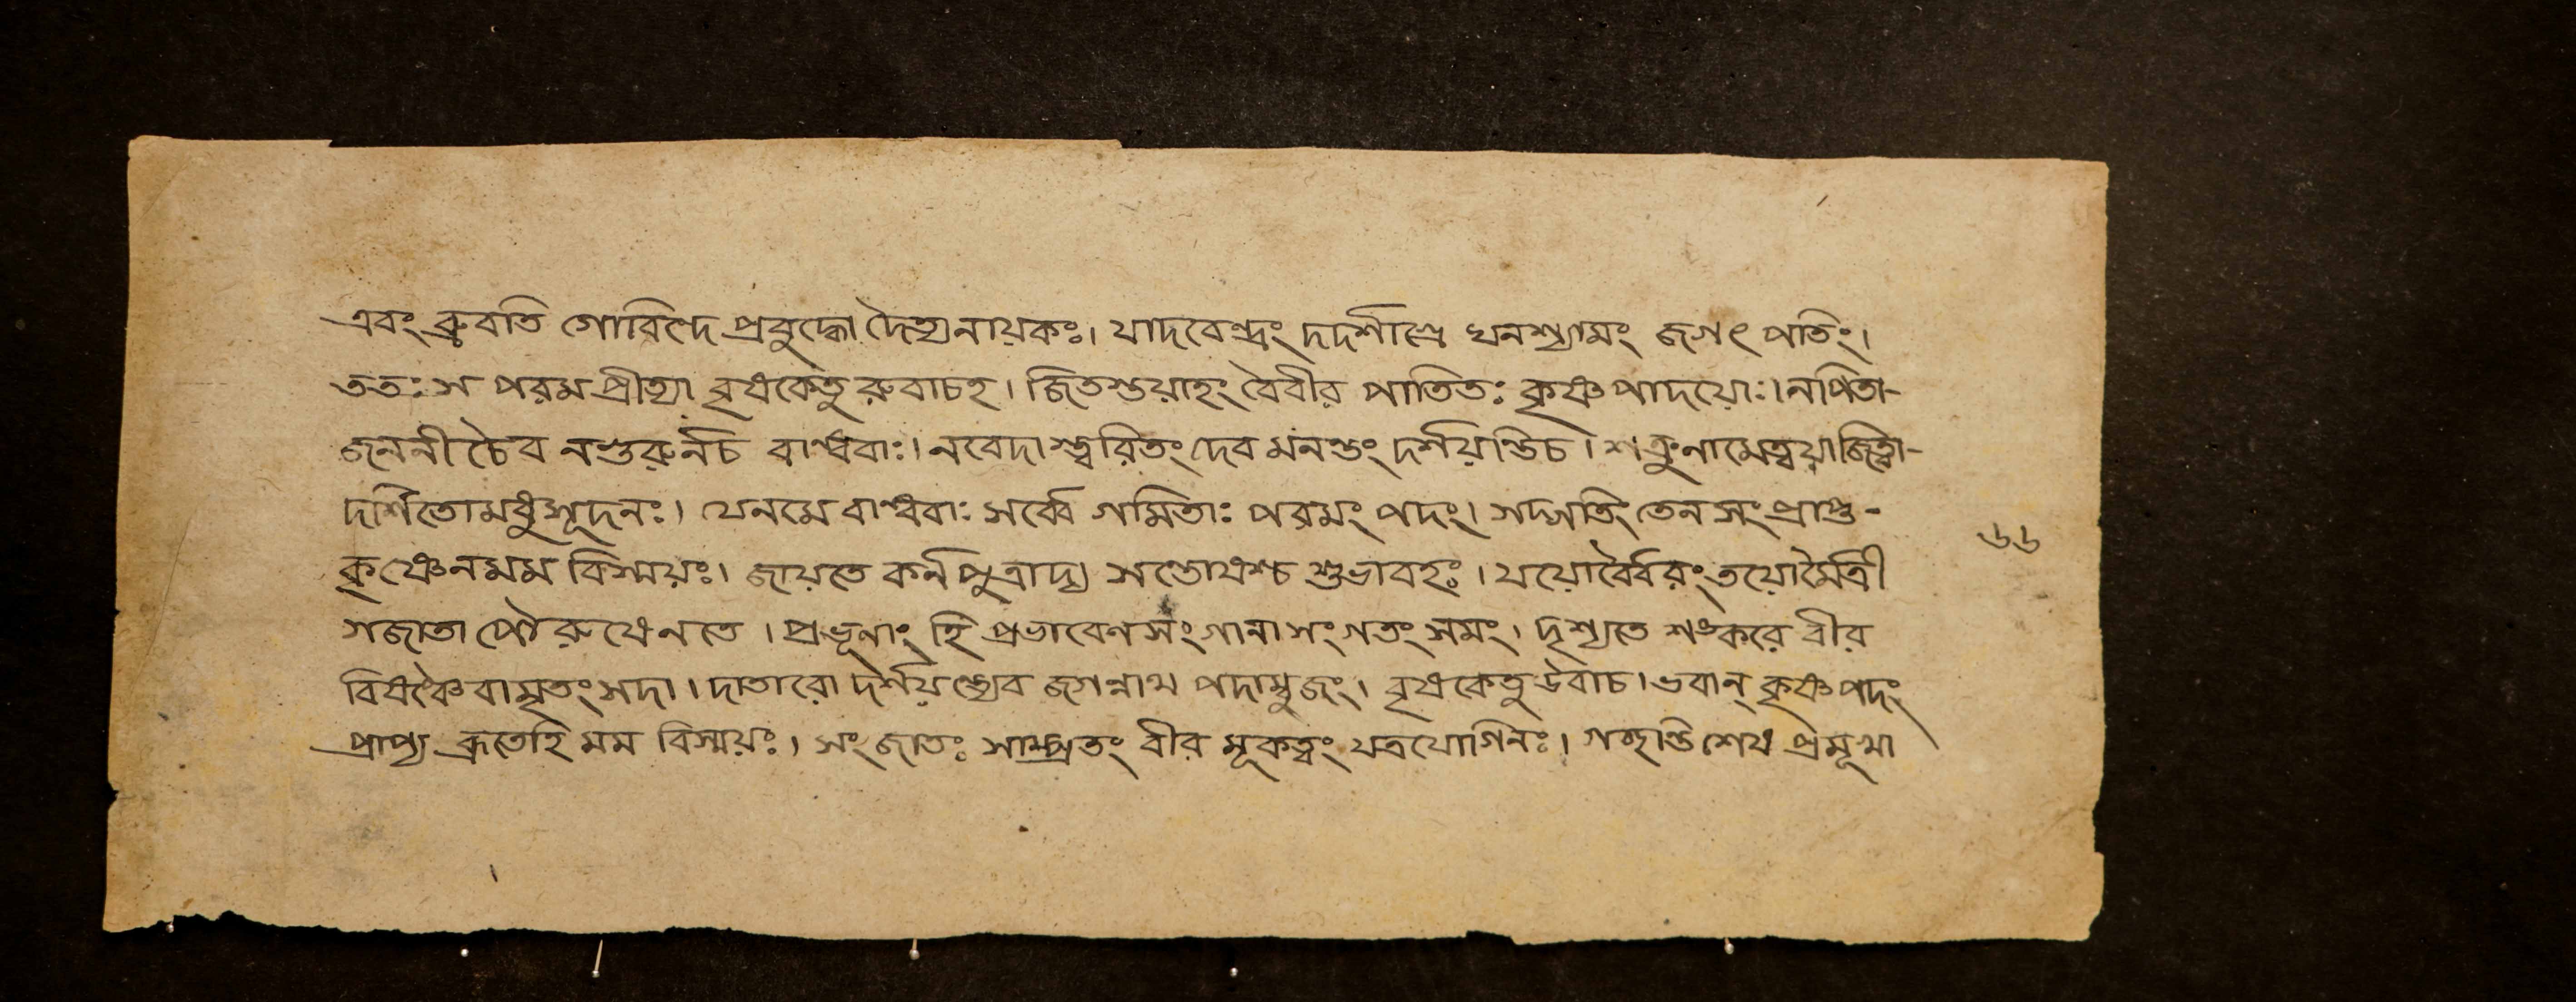 এবং ব্রুবতি গোবিন্দে প্রবুদ্ধো দৈত্যনায়কঃ। যাদবেন্দ্রং দদর্শাগ্রে ঘনশ্যামং জগৎ পতিং।
ততঃ স পরম প্রীত্যা বৃষকেতু রুবাচহ। জিতস্ত্বয়াহং বৈবীর পাতিতঃ কৃষ্ণ পাদয়োঃ। নপিতা-
জননী চৈব নগুরুর্নচ বান্ধবাঃ। নবেদাস্ত্বরিতং দেব মনন্তং দর্শয়ন্তিচ। শত্রুনামেত্বয়াজিত্বা-
দর্শিতোমধুসূদনঃ। যেনমে বান্ধবাঃ সর্ব্বে গমিতাঃ পরমং পদং। সদ্গতিং তেন সং প্রাপ্ত-
কৃষ্ণেনমম বিস্ময়ঃ। জায়তে কর্নপুত্রাদ্য সন্তোষশ্চ শুভাবহঃ। যয়োর্বৈরং তয়োর্মৈত্রী
গজাতা পৌরুষেনতে। প্রভূনাং হি প্রভাবেণসংগানাসংগতং সমং। দৃশ্যতে শঙ্করে বীর
বিষঞ্চৈবামৃতং সদা। দাতারো দর্শয়ন্ত্যেব জগন্নাথ পদাম্বুজং। বৃষকেতু উবাচ। ভবান্ কৃষ্ণপদং
প্রাপ্য ব্রূতেহি মম বিস্ময়ঃ। সংজাতঃ সাম্প্রতং বীর মূকত্বং যত্রযোগিনঃ। গচ্ছন্তি শেষ প্রমূখা
৬৬